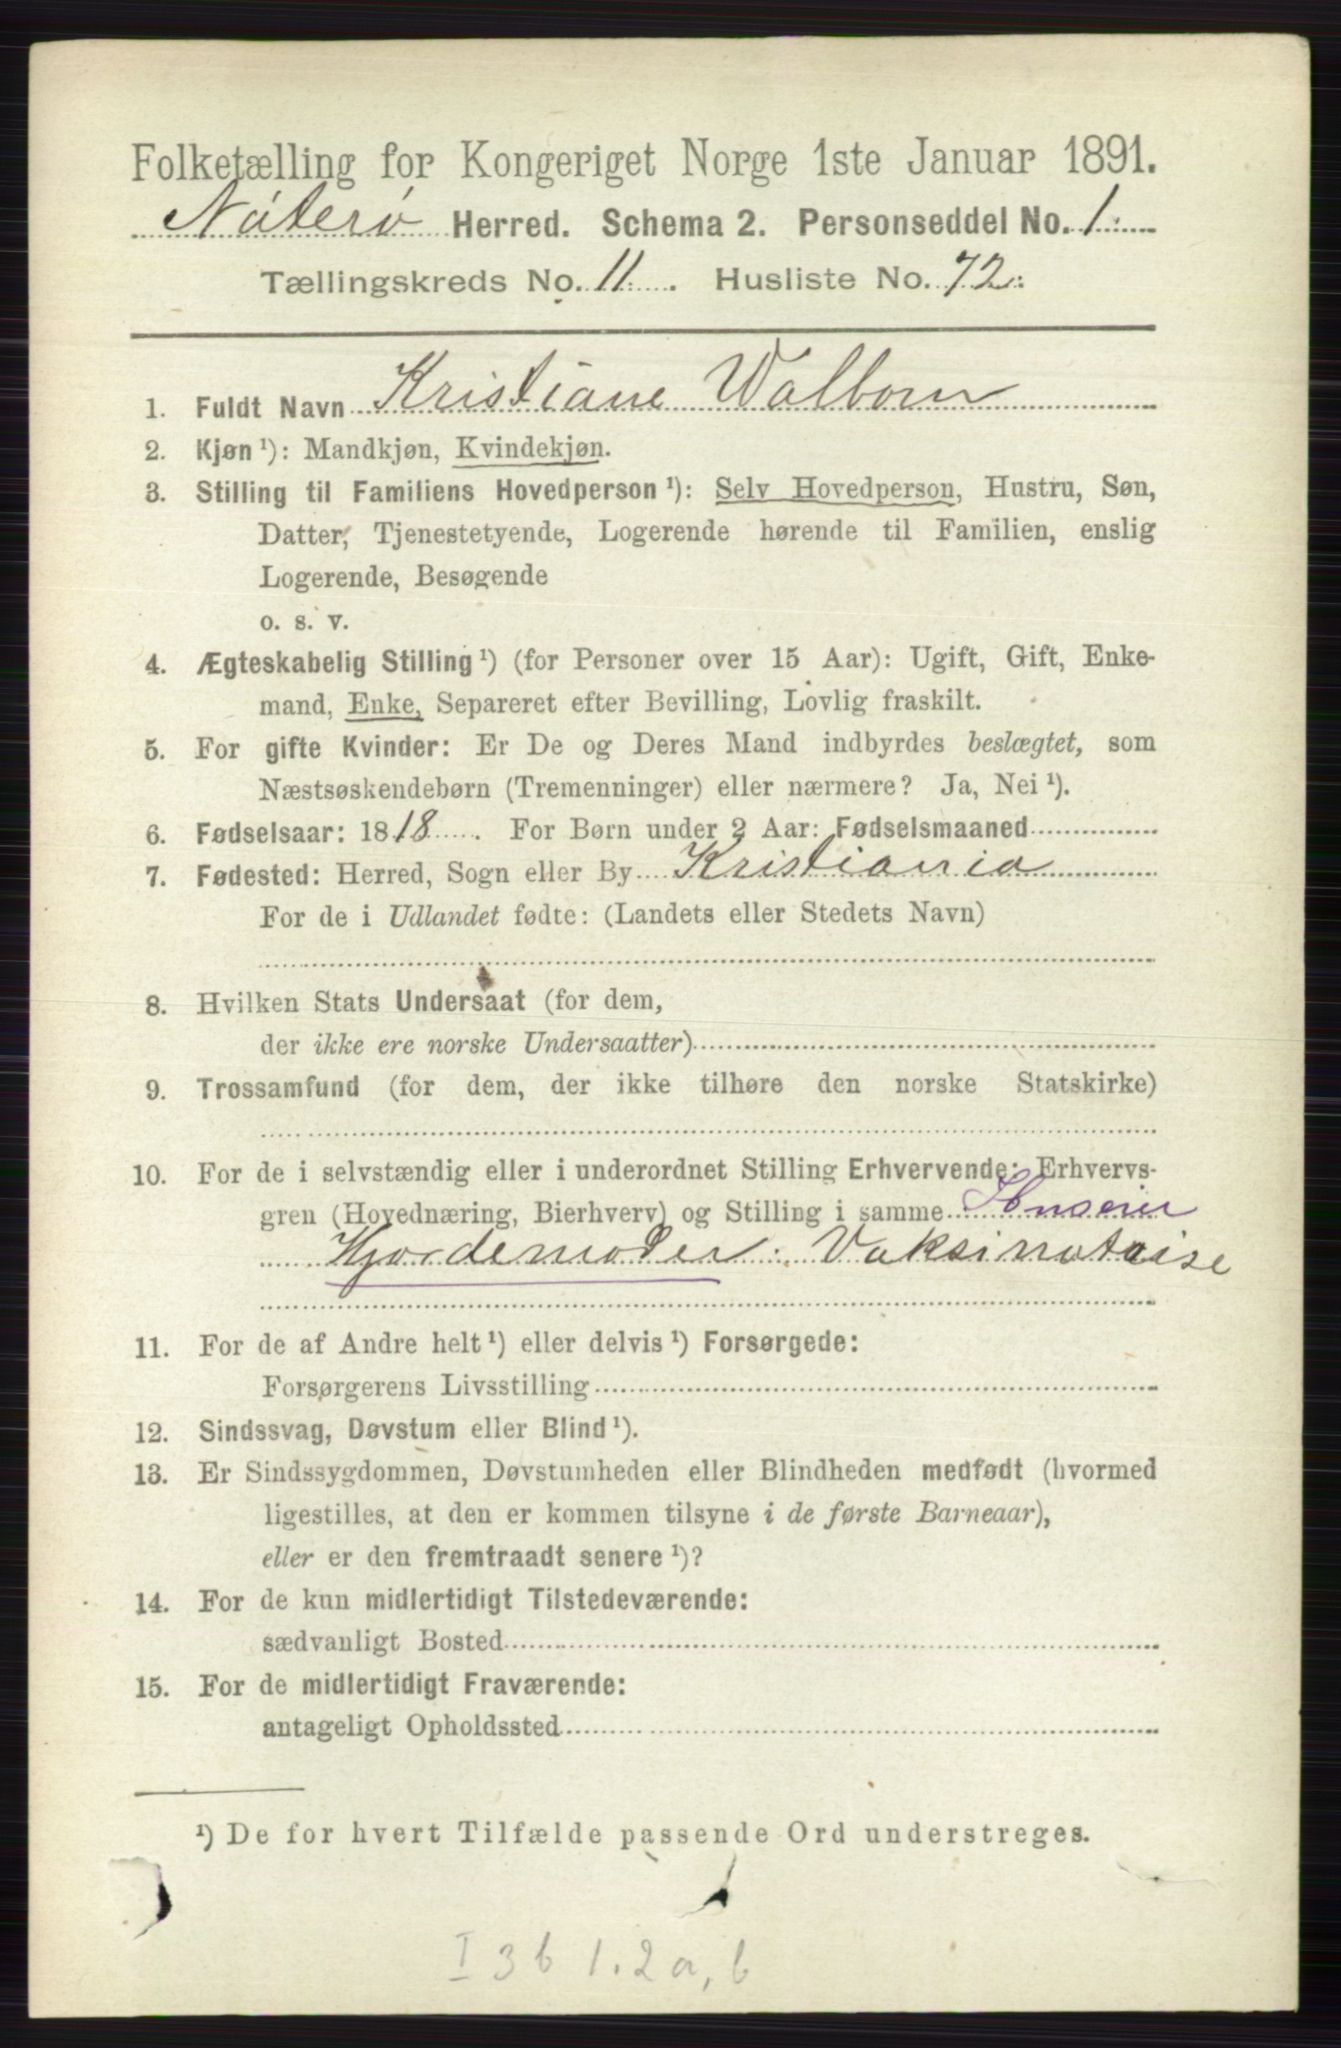 Folketælling for Kongeriget Norge 1ste Januar 1891.
Nøterø Herred. Schema 2. Personseddel No. 1.
Tællingskreds No. 11. Husliste No. 72.
1. Fuldt Navn Kristiane Walborn
2. Kjøn ¹): Mandkjøn, Kvindekjøn.
3. Stilling til Familiens Hovedperson ¹): Selv Hovedperson, Hustru, Søn,
Datter, Tjenestetyende, Logerende hørende til Familien, enslig
Logerende, Besøgende
o. s. v.
4. Ægteskabelig Stilling ¹) (for Personer over 15 Aar): Ugift, Gift, Enke-
mand, Enke, Separeret efter Bevilling, Lovlig fraskilt.
5. For gifte Kvinder: Er De og Deres Mand indbyrdes beslægtet, som
Næstsøskendebørn (Tremenninger) eller nærmere? Ja, Nei ¹).
6. Fødselsaar: 1818. For Børn under 2 Aar: Fødselsmaaned
7. Fødested: Herred, Sogn eller By Kristiania
For de i Udlandet fødte: (Landets eller Stedets Navn)
8. Hvilken Stats Undersaat (for dem,
der ikke ere norske Undersaatter)
9. Trossamfund (for dem, der ikke tilhøre den norske Statskirke)
10. For de i selvstændig eller i underordnet Stilling Erhvervende: Erhvervs-
gren (Hovednæring, Bierhverv) og Stilling i samme Huseier
Hjordemoder. Vaksinatrise
11. For de af Andre helt ¹) eller delvis ¹) Forsørgede:
Forsørgerens Livsstilling
12. Sindssvag, Døvstum eller Blind ¹).
13. Er Sindssygdommen, Døvstumheden eller Blindheden medfødt (hvormed
ligestilles, at den er kommen tilsyne i de første Barneaar),
eller er den fremtraadt senere ¹)?
14. For de kun midlertidigt Tilstedeværende:
sædvanligt Bosted
15. For de midlertidigt Fraværende:
antageligt Opholdssted
¹) De for hvert Tilfælde passende Ord understreges.
I 3 b 1. 2 a, b